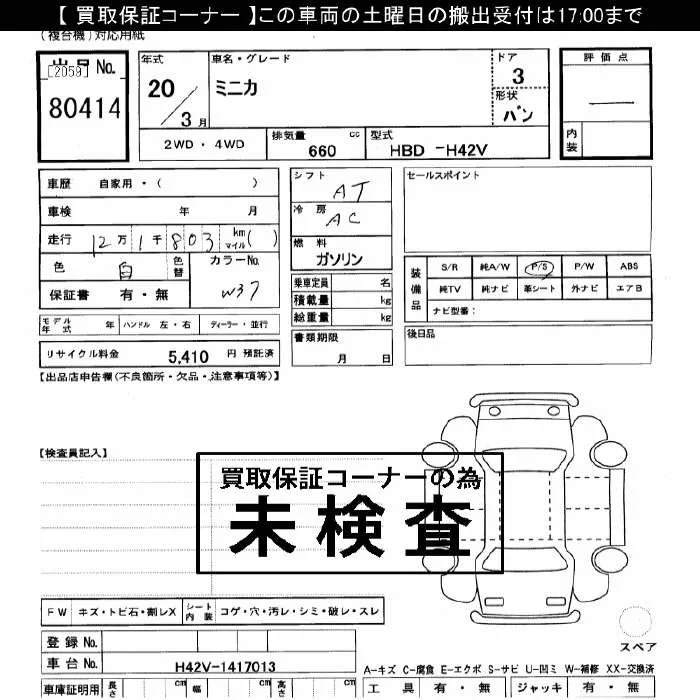 【 買取保証コーナー 】この車両の土曜日の搬出受付は17:00まで
(複合機)対応用紙
出品 No.
[2059]
80414
年式
20 / 3 月
車名・グレード
ミニカ
ドア
3
形状
バン
評価点
—
内装
2WD ・ 4WD
排気量 cc
660
型式
HBD -H42V
車歴 自家用・( )
車検 年 月
走行 12万1千803 km マイル( )
色 白 色替
カラーNo.
W37
保証書 有・無
シフト
AT
冷房
AC
燃料
ガソリン
乗車定員 名
積載量 kg
総重量 kg
セールスポイント
装備品
S/R 純A/W P/S P/W ABS
純TV 純ナビ 革シート 外ナビ エアB
ナビ型番:
モデル年式 年 ハンドル 左・右 ディーラー・並行
書類期限
月 日
後日品
リサイクル料金 5,410 円 預託済
【出品店申告欄(不良箇所・欠品・注意事項等)】
【検査員記入】
買取保証コーナーの為
未検査
FW キズ・トビ石・割レX シート内装 コゲ・穴・汚レ・シミ・破レ・スレ
スペア
登録 No.
車台 No. H42V-1417013
A-キズ C-腐食 E-エクボ S-サビ U-凹ミ W-補修 XX-交換済
車庫証明用 長さ cm 幅 cm 高さ cm
工具 有・無 ジャッキ 有・無